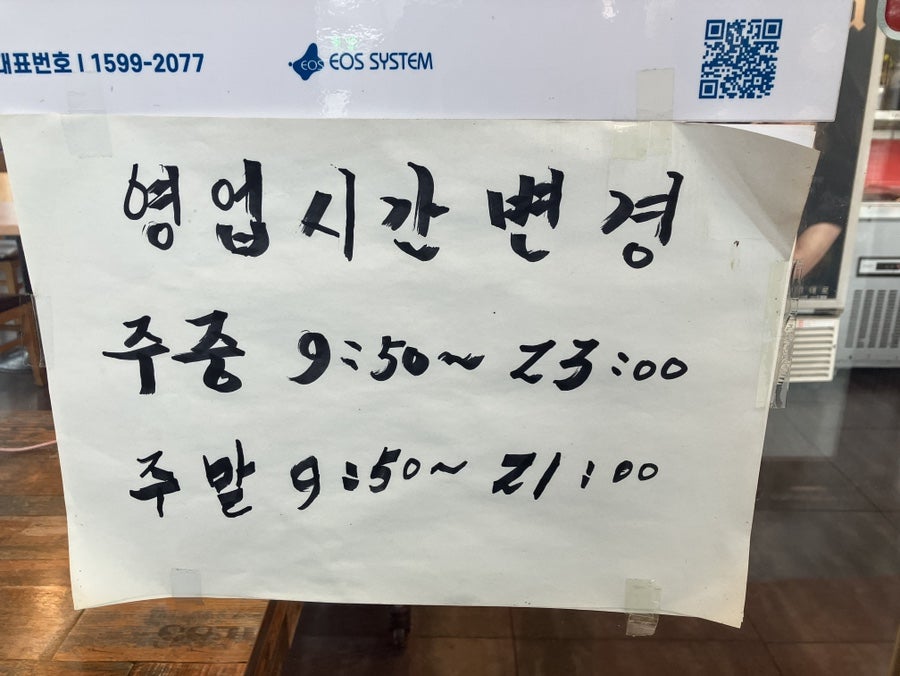 대표번호 | 1599-2077
EOS EOS SYSTEM
영업시간 변경
주중 9:50~23:00
주말 9:50~21:00